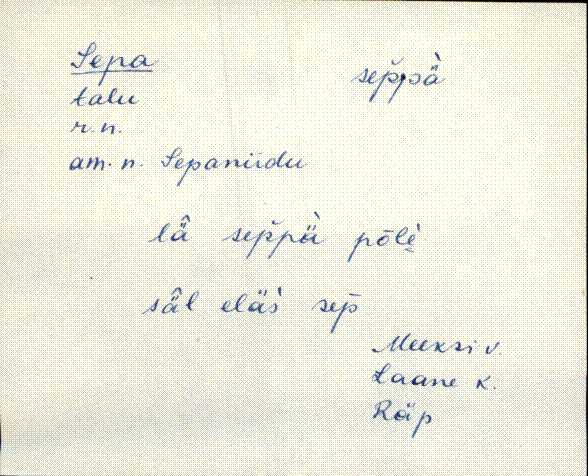 Sepa sep̆pä̀
talu
r.n.
am. n. Sepaniidu
lä̂ sep̆pä̀ põlè̮
sä̂l eläs̀ sep̄
Meeksi v.
Laane k.
Räp